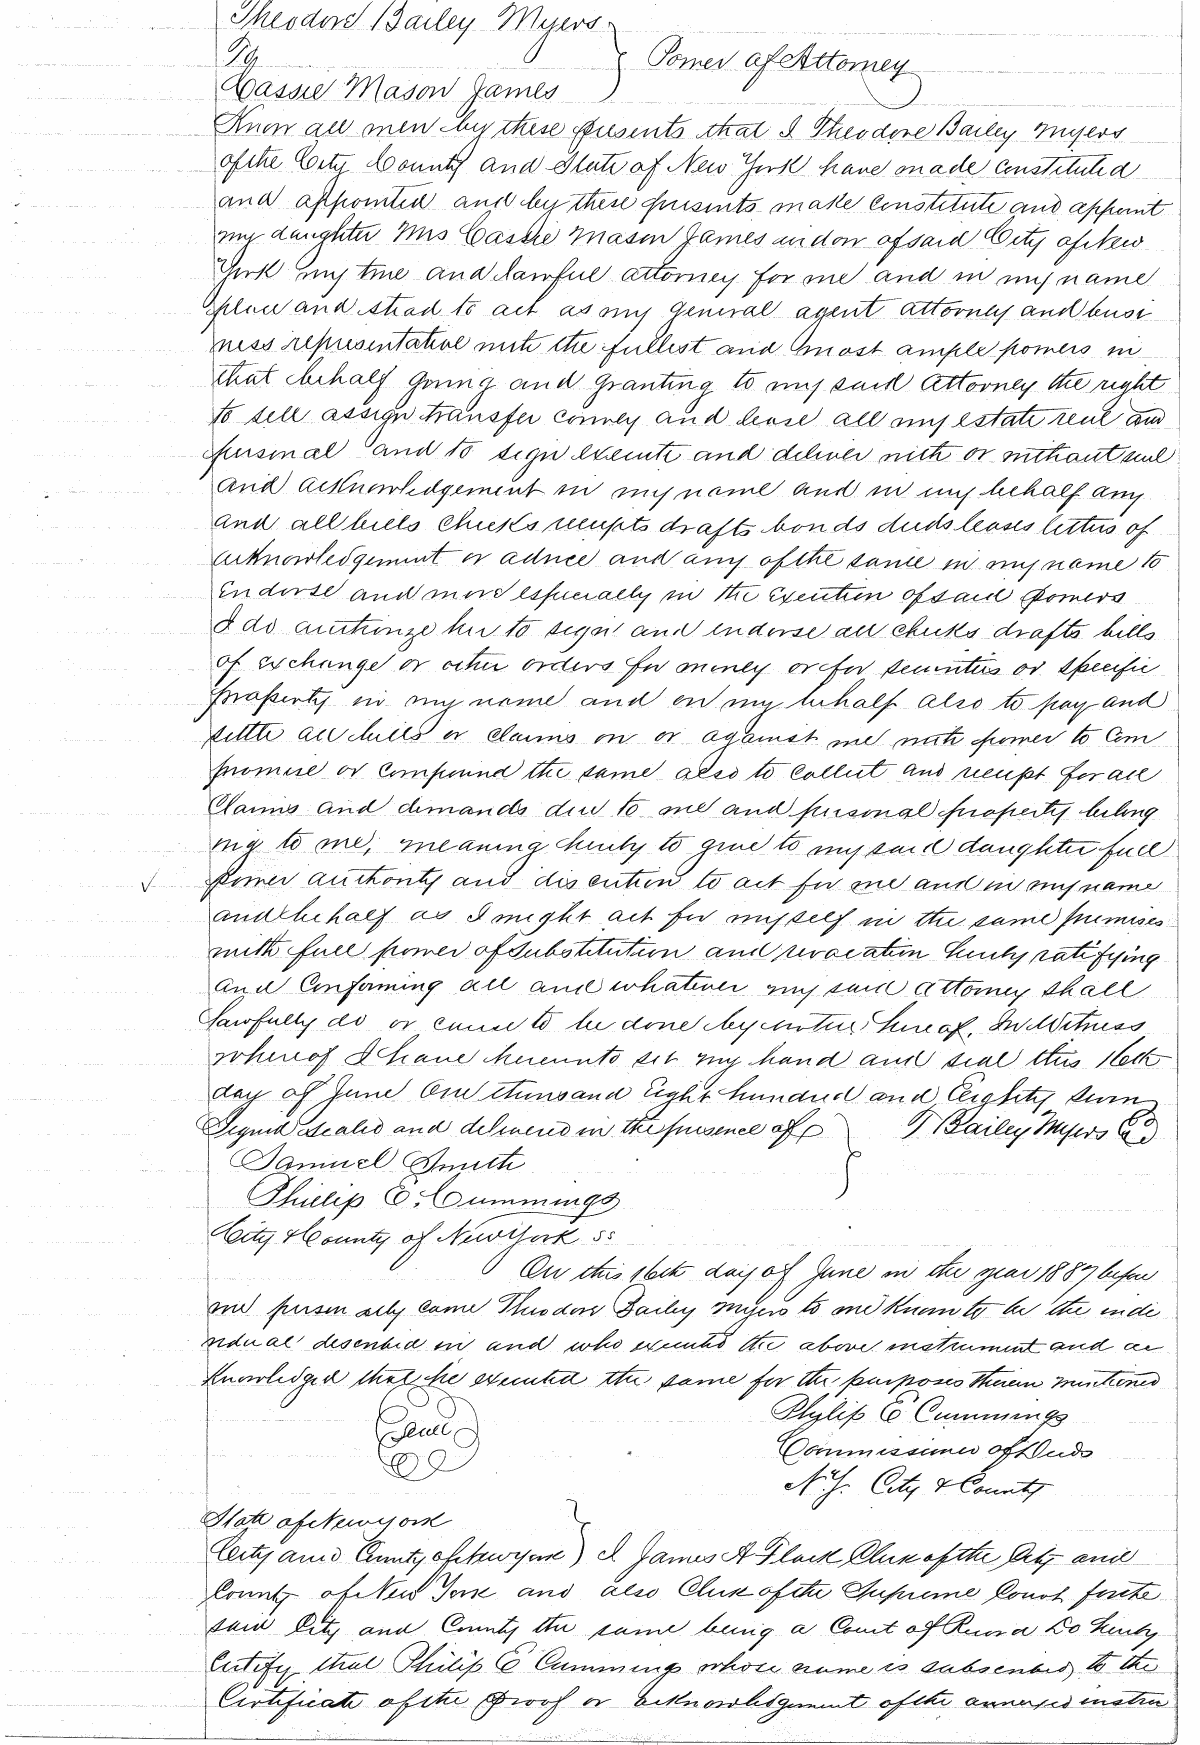 Theodore Bailey Myers
To
Power of Attorney
Cassie Mason James
Know all men by these presents that I Theodore Bailey Myers
of the City County and State of New York have made constituted
and appointed and by these presents make constitute and appoint
my daughter Mrs Cassie Mason James widow of said City of New
York my true and lawful attorney for me and in my name
place and stead to act as my general agent attorney and busi
ness representative with the fullest and most ample powers in
that behalf giving and granting to my said Attorney the right
to sell assign transfer convey and lease all my estate real and
personal and to sign execute and deliver with or without seal
and acknowledgement in my name and in my behalf any
and all bills checks receipts drafts bonds deeds leases letters of
acknowledgement or advice and any of the same in my name to
endorse and more especially in the execution of said powers
I do authorize her to sign and endorse all checks drafts bills
of exchange or other orders for money or for securities or specific
property in my name and on my behalf also to pay and
settle all bills or claims on or against me with power to com
promise or compound the same also to collect and receipt for all
claims and demands due to me and personal property belong
ing to me, meaning hereby to give to my said daughter full
power authority and discretion to act for me and in my name
and behalf as I might act for myself in the same premises
with full power of substitution and revocation hereby ratifying
and confirming all and whatever my said attorney shall
lawfully do or cause to be done by virtue hereof. In Witness
whereof I have hereunto set my hand and seal this 16th
day of June One thousand Eight hundred and Eighty Seven
Signed sealed and delivered in the presence of T Bailey Myers
Samuel Smith
Phillip E. Cummings
City & County of New York ss
On this 16th day of June in the year 1887 before
me personally came Theodore Bailey Myers to me known to be the indi
vidual described in and who executed the above instrument and ac
knowledged that he executed the same for the purposes therein mentioned
Philip E Cummings
Seal
Commissioner of Deeds
N.Y. City & County
State of New york
City and County of New york) I James A Flack Clerk of the City and
County of New York and also Clerk of the Supreme Court for the
said City and County the same being a Court of Record Do hereby
Certify that Philip E Cummings whose name is subscribed to the
Certificate of the proof or acknowledgement of the annexed instru